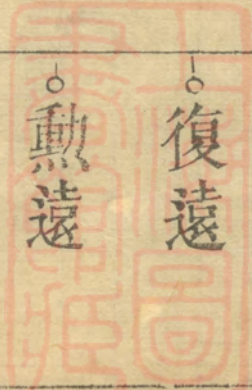 復遠
勲遠